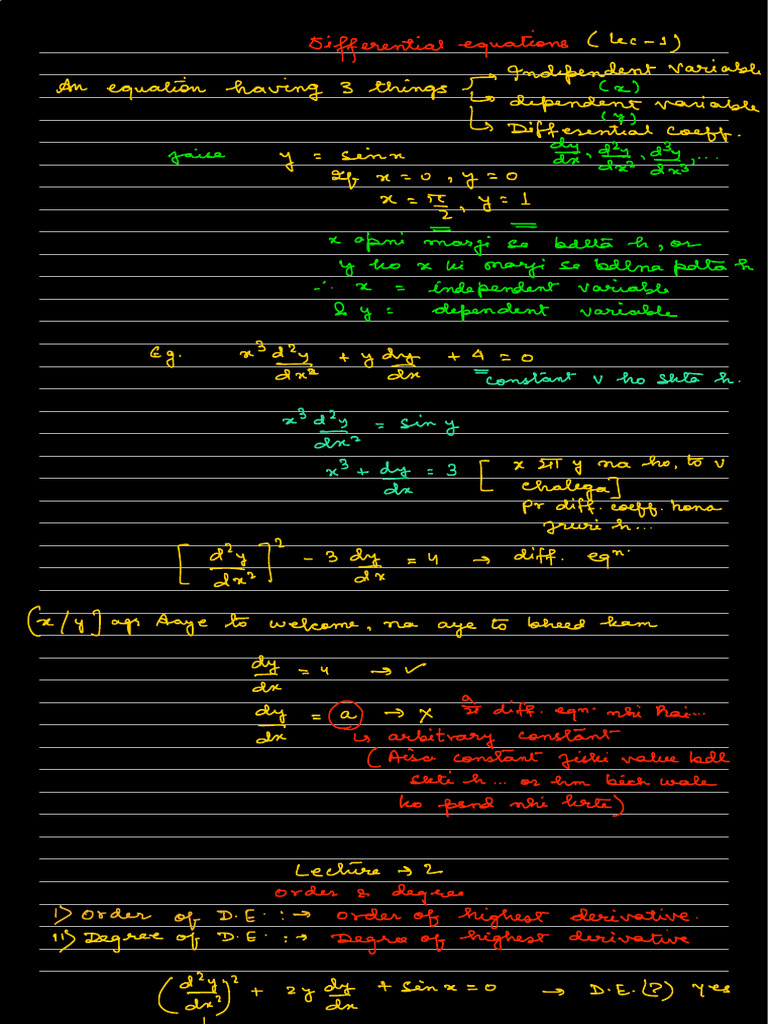 Differential equations (Lec-1)
An equation having 3 things → Independent variable
(x)
→ dependent variable
(y)
→ Differential coeff.
dy/dx, d²y/dx², d³y/dx³, ...
jaise y = sinx
If x = 0, y = 0
x = π/2, y = 1
x apni marji se bdltā h, or
y ko x ki marji se bdlna pdtā h
∴ x = independent variable
& y = dependent variable
Eg. x³ d²y/dx² + y dy/dx + 4 = 0
constant v ho sktā h.
x³ d²y/dx² = sin y
x³ + dy/dx = 3 [ x या y na ho, to v
chalega]
pr diff. coeff. hona
jruri h...
[d²y/dx²]² - 3 dy/dx = 4 → diff. eqn.
(x/y] agr Aaye to welcome, na aye to bheed kam
dy/dx = 4 → ✓
dy/dx = a → ✗ diff. eqn. nhi hai...
↳ arbitrary constant
(Aisa constant jiski value bdl
skti h... or hm bich wale
ko psnd nhi krte)
Lecture → 2
order & degree
i) Order of D.E. :→ order of highest derivative.
ii) Degree of D.E. :→ Degree of highest derivative
(d²y/dx²)² + 2y dy/dx + sin x = 0 → D.E.(?) Yes